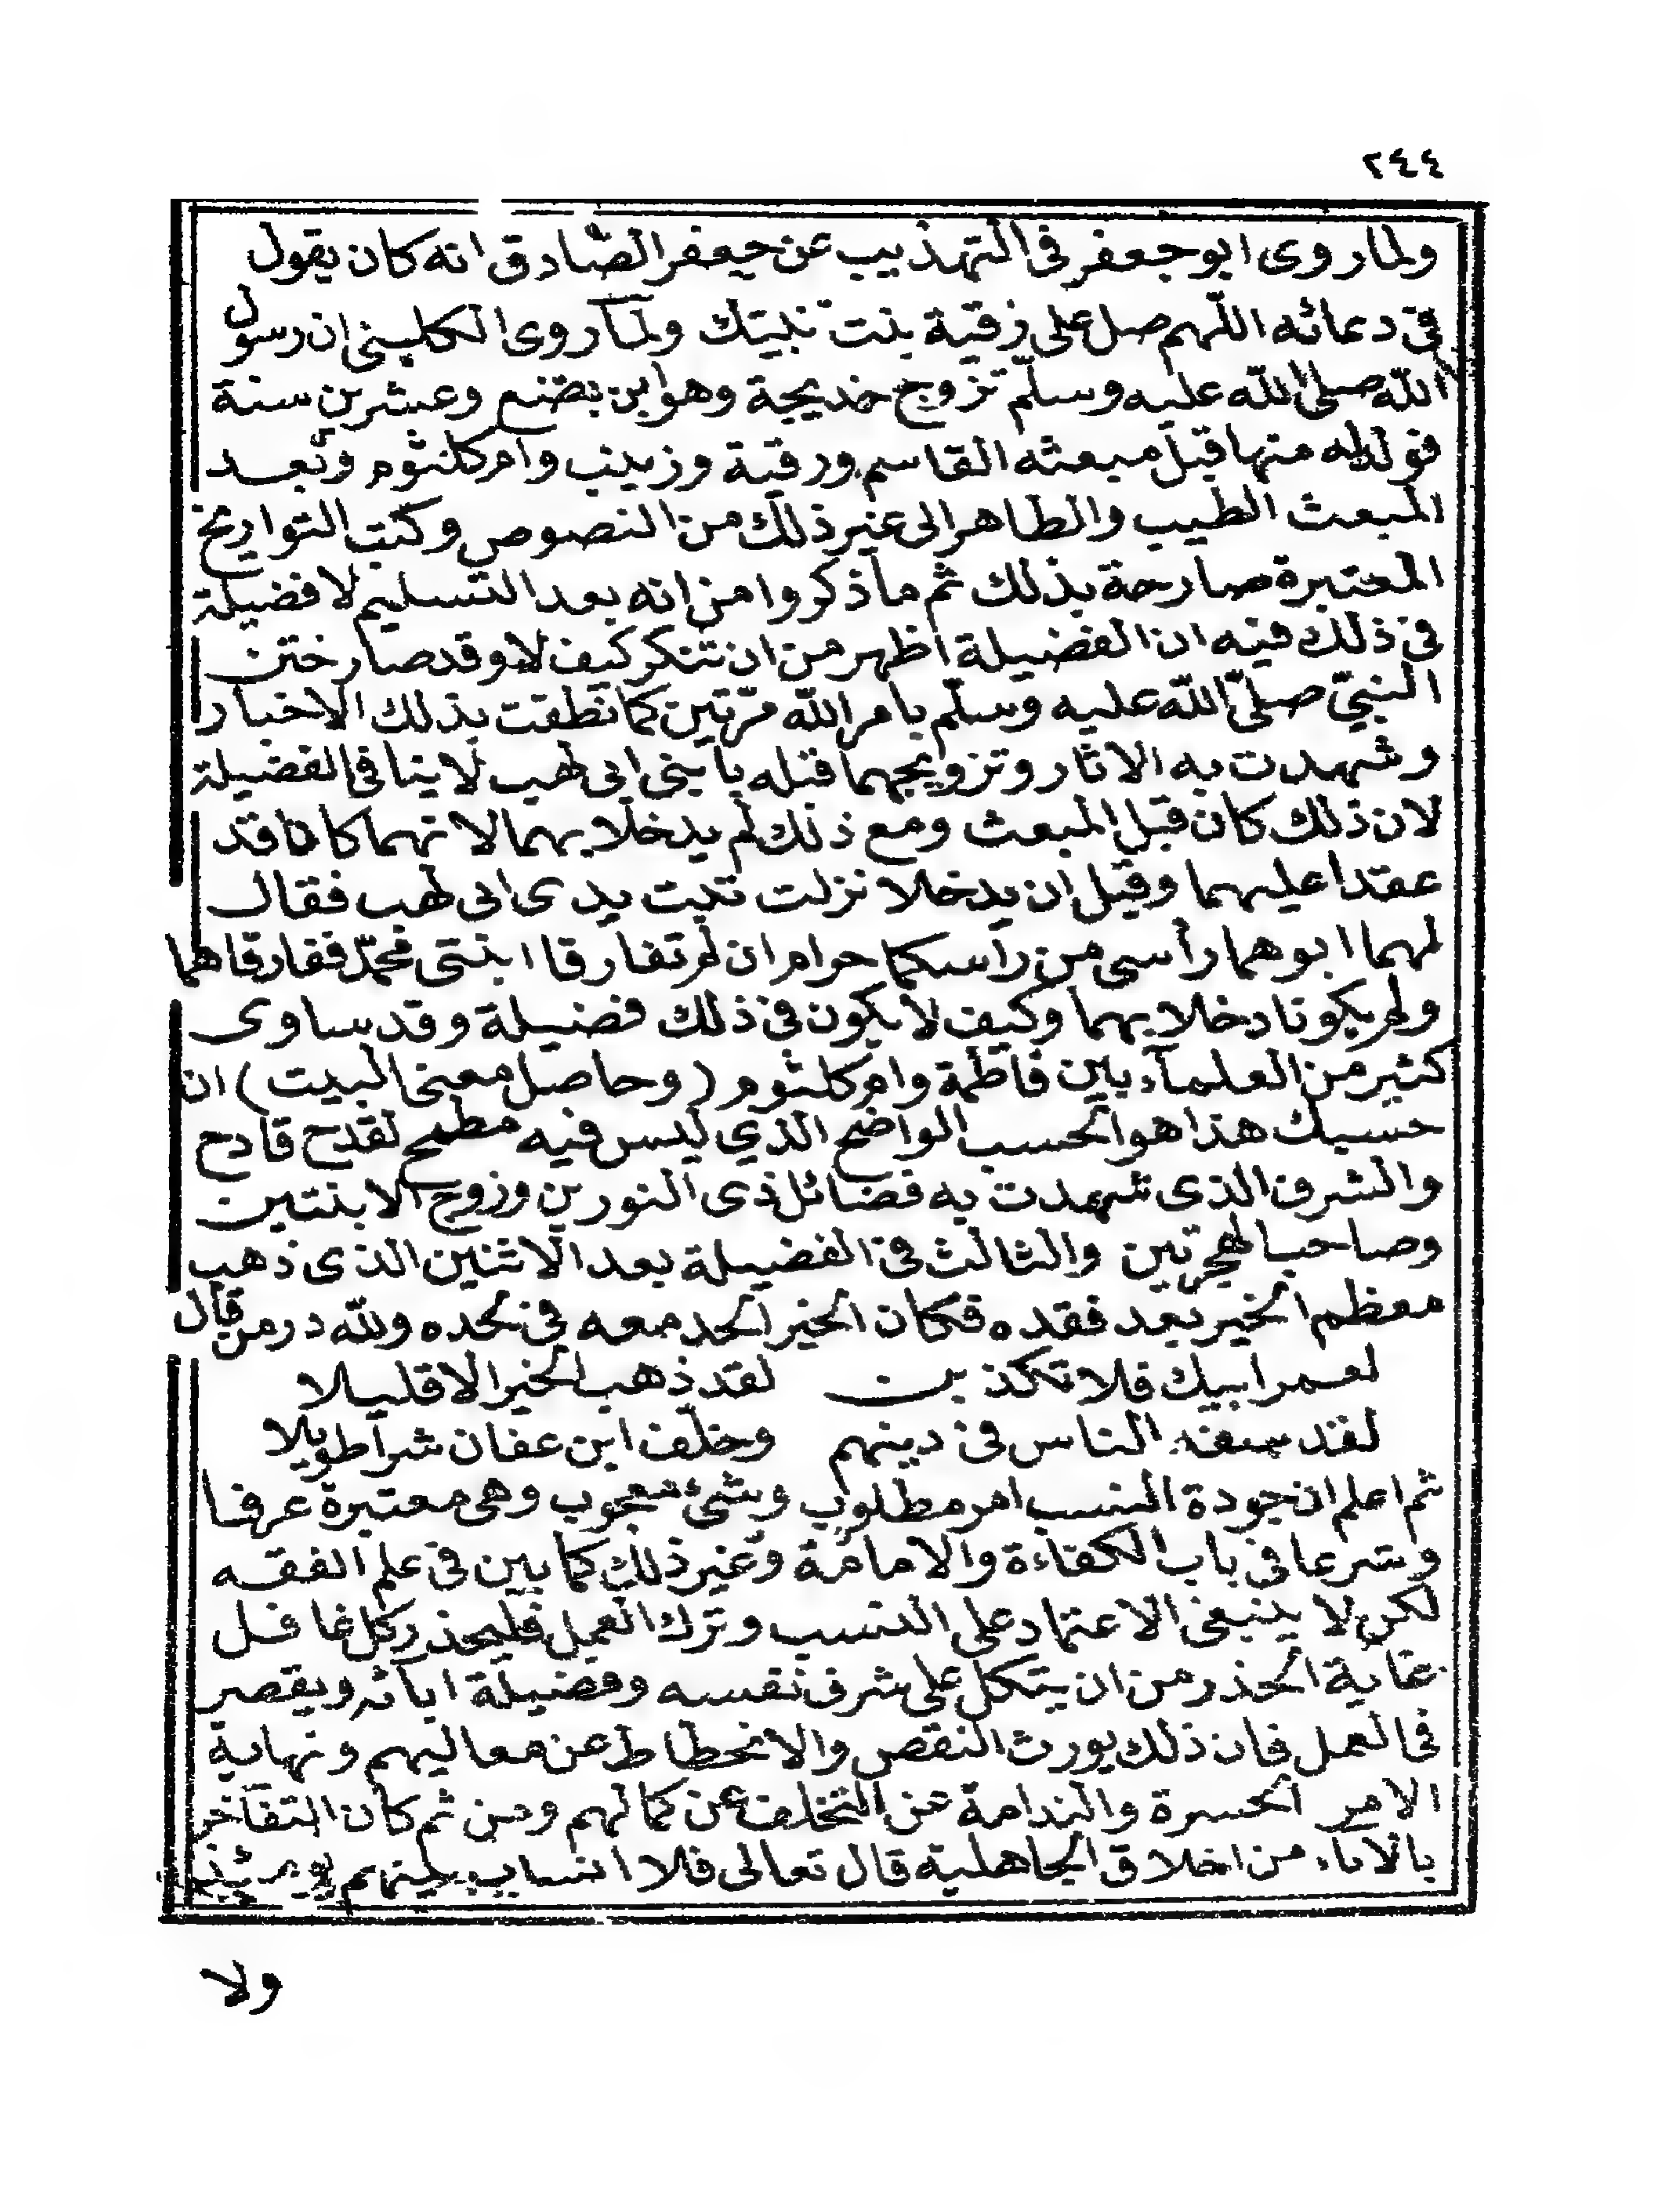 ٢٤٤
ولما روى ابو جعفر في التهذيب عن جعفر الصادق انه كان يقول
في دعائه اللهم صل على رقية بنت نبيك ولما روى الكليني ان رسول
الله صلى الله عليه وسلم تزوج خديجة وهو ابن بضع وعشرين سنة
فولد له منها قبل مبعثه القاسم ورقية وزينب وام كلثوم وبعد
المبعث الطيب والطاهر الى غير ذلك من النصوص وكتب التواريخ
المعتبرة صارحة بذلك ثم ما ذكروا من انه بعد التسليم لا فضيلة
في ذلك فيه ان الفضيلة اظهر من ان تنكر كيف لا وقد صار ختن
النبي صلى الله عليه وسلم بامر الله مرّتين كما نطقت بذلك الاخبار
وشهدت به الاثار وتزويجهما قبله بابني ابي لهب لا ينافي الفضيلة
لان ذلك كان قبل المبعث ومع ذلك لم يدخلا بهما لانهما كانا قد
عقدا عليهما وقبل ان يدخلا نزلت تبت يدى ابى لهب فقال
لهما ابوهما رأسى من راسكما حرام ان لم تفارقا ابنتى محمد ففارقاهما
ولم يكونا دخلا بهما وكيف لا يكون في ذلك فضيلة وقد ساوى
كثير من العلمآء بين فاطمة وام كلثوم (وحاصل معنى البيت) ان
حسبك هذا هو الحسب الواضح الذي ليس فيه مطمح لقدح قادح
والشرف الذى شهدت به فضائل ذى النورين وزوج الابنتين
وصاحب الهجرتين والثالث في الفضيلة بعد الاثنين الذى ذهب
معظم الخير بعد فقده فكان الخير الحد معه في لحده ولله در من قال
لعمر ابيك فلا تكذبن لقد ذهب الخير الا قليلا
لقد سفه الناس في دينهم وخلف ابن عفان شرا طويلا
ثم اعلم ان جودة النسب امر مطلوب وشئ محبوب وهى معتبرة عرفا
وشرعا في باب الكفاءة والامامة وغير ذلك كما بين في علم الفقه
لكن لا ينبغى الاعتماد على النسب وترك العمل فليحذر كل غافل
غاية الحذر من ان يتكل على شرف نفسه وفضيلة ابآئه ويقصر
في العمل فان ذلك يورث النقص والانحطاط عن معاليهم ونهاية
الامر الحسرة والندامة عن التخلف عن كمالهم ومن ثم كان التفاخر
بالآباء من اخلاق الجاهلية قال تعالى فلا انساب بينهم يومئذ
ولا